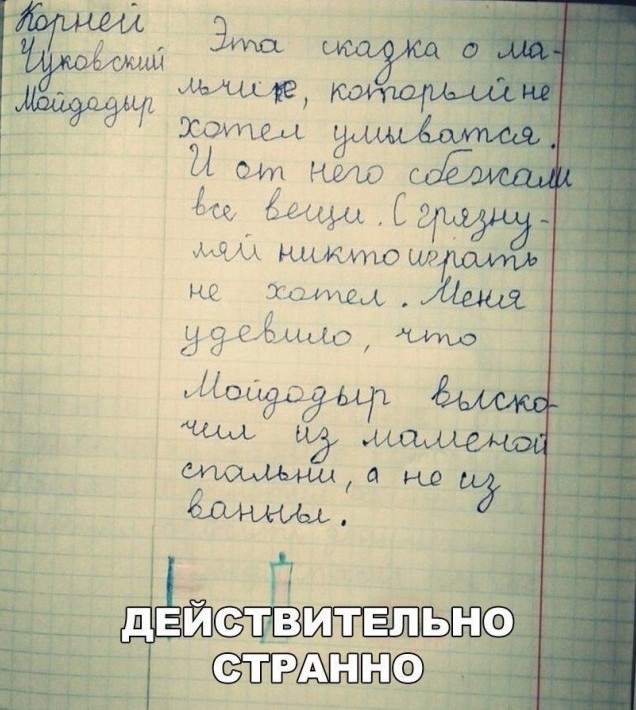 Корней
Чуковский
Мойдодыр
Эта сказка о ма-
льчике, который не
хотел умыватся.
И от него сбежали
все вещи. С грязну-
ляй никто играть
не хотел. Меня
удевило, что
Мойдодыр выско-
чил из маменой
спальни, а не из
ванны.
ДЕЙСТВИТЕЛЬНО
СТРАННО